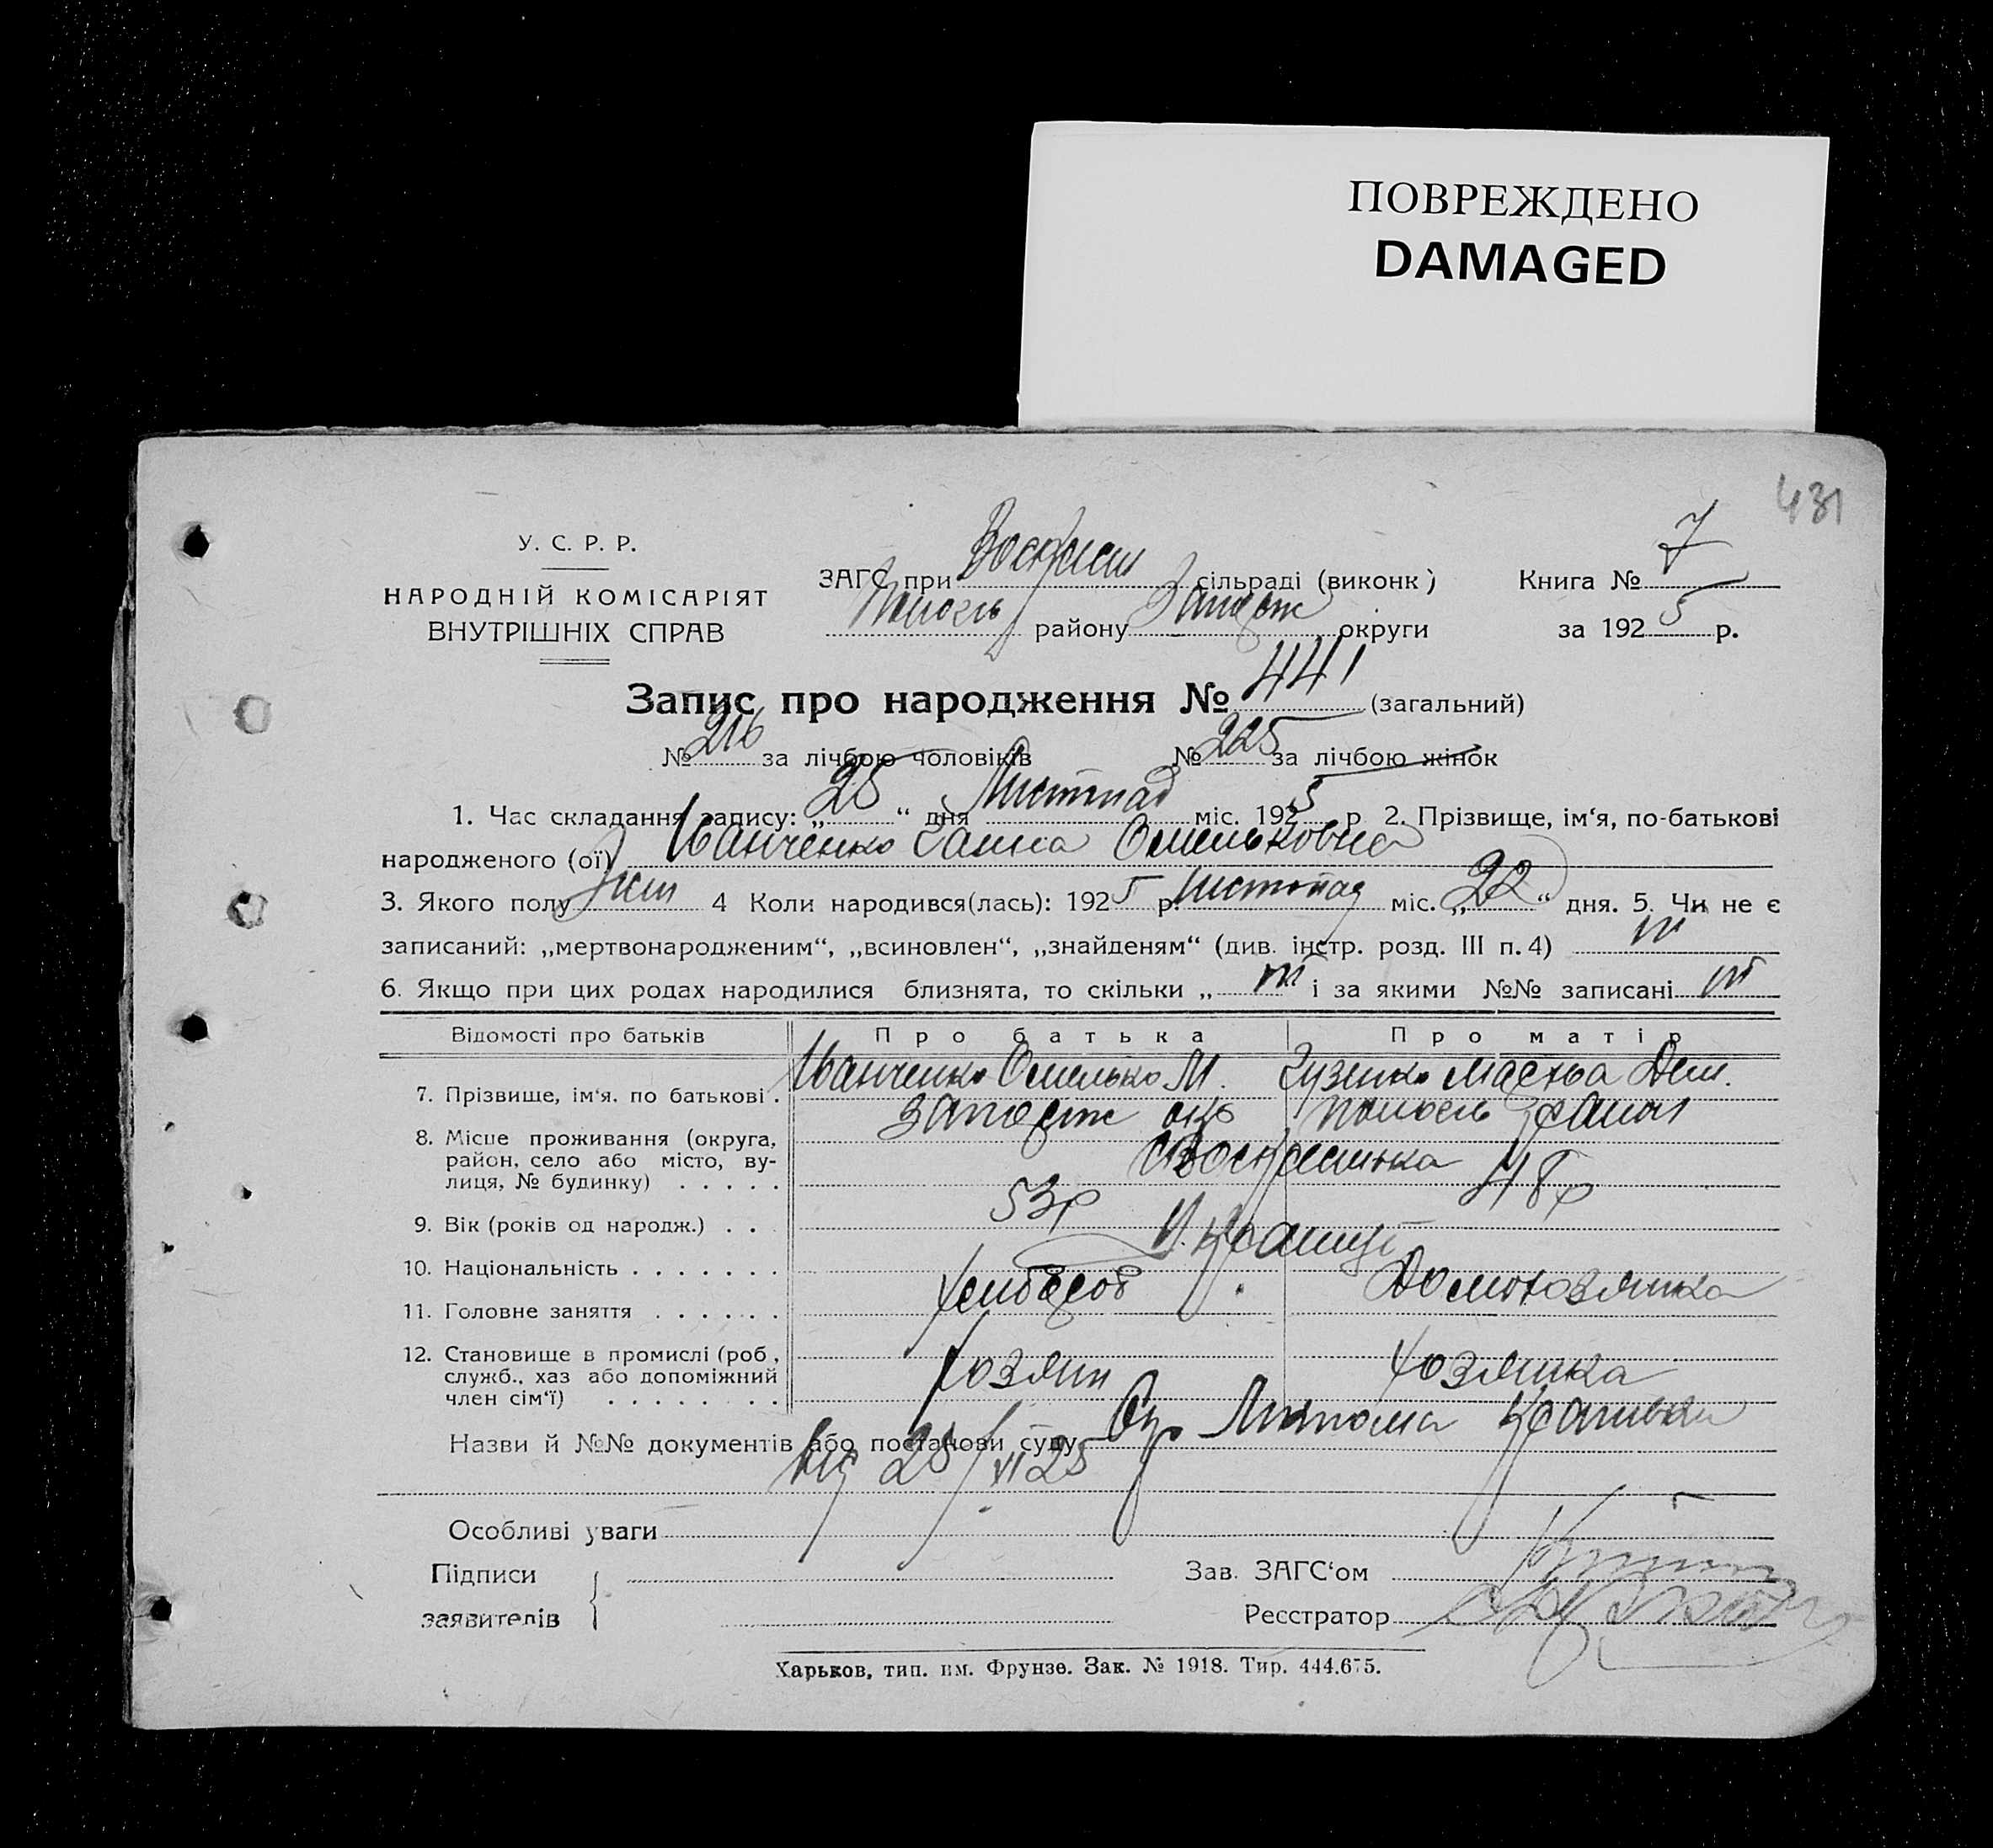 ПОВРЕЖДЕНО
DAMAGED
431
У. С. Р. Р.
НАРОДНІЙ КОМІСАРІЯТ
ВНУТРІШНІХ СПРАВ
ЗАГС при Воскресен сільраді (виконк)
району Запорж округи
Книга № 7
за 1925 р.
Запис про народження № 441 (загальний)
№ 216 за лічбою чоловіків № 225 за лічбою жінок
1. Час складання запису: „ 25 “ дня Листопад міс. 1925 р 2. Прізвище, ім‘я, по-батькові
народженого (ої) Иванченко Ганна Омельковна
3. Якого полу Жен 4 Коли народився(лась): 1925 р. Листопад міс. „ 22 “ дня. 5. Чи не є
записаний: „мертвонародженим“, „всиновлен“, „знайденям“ (див. інстр. розд. III п. 4) ні
6. Якщо при цих родах народилися близнята, то скільки „ ні і за якими №№ записані ні
Відомості про батьків Про батька Про матір
7. Прізвище, ім‘я. по батькові. Иванченко Омелько М. Гузенко Марья Дем.
8. Місце проживання (округа, район, село або місто, вулиця, № будинку) Запорж окр район
Воскресенка
9. Вік (років од народж.) . . 53р 48р
10. Національність Украинці
11. Головне заняття хлібороб Домохозяйка
12. Становище в промислі (роб, служб., хаз або допоміжний член сім‘ї) хозяин хозяйка
Назви й №№ документів або постанови суду
від 25/VI 25
Особливі уваги
Підписи
заявителів
Зав. ЗАГС‘ом
Реєстратор
Харьков, тип. им. Фрунзе. Зак. № 1918. Тир. 444.675.